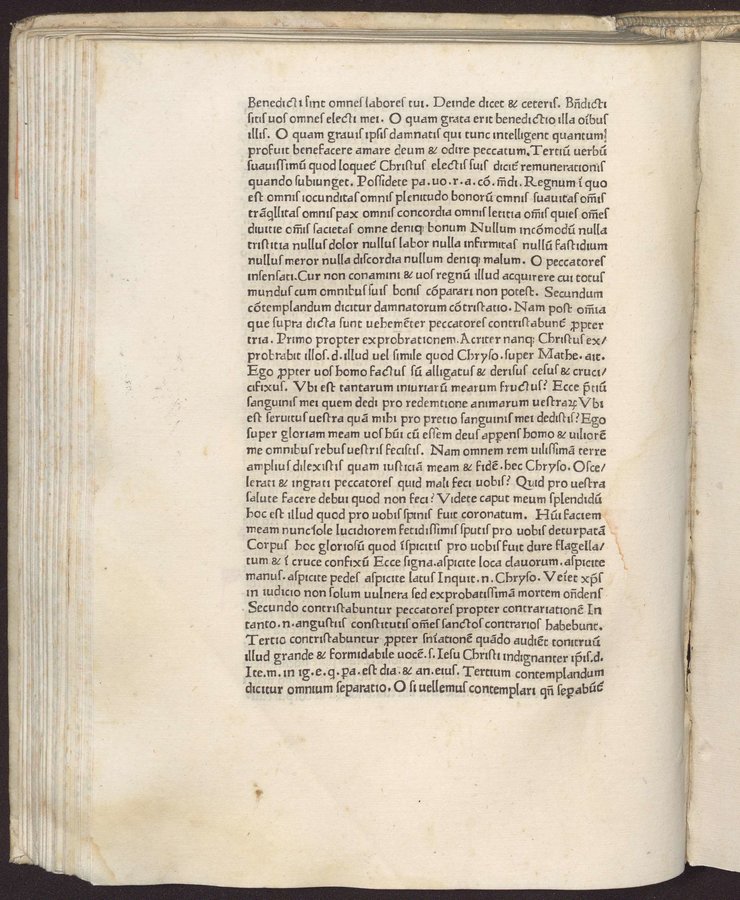 Benedicti ſint omneſ laboreſ tui. Deinde dicet & ceteriſ. Bñdicti
ſitiſ uoſ omneſ electi mei. O quam grata erit benedictio illa oību
illiſ. O quam grauiſ ipſiſ damnatiſ qui tunc intelligent quantum
profuit benefacere amare deum & odire peccatum. Tertiū uerbū
ſuauiſſimū quod loquet̄ Chriſtuſ electiſ ſuiſ dicit̄ remunerationiſ
quando ſubiunget. Poſſidete pa. uo. r. a. cō. m̄di. Regnum ī quo
eſt omniſ iocunditaſ omniſ plenitudo bonorū omniſ ſuauitaſ om̄iſ
trāq̄llitaſ omniſ pax omniſ concordia omniſ letitia om̄iſ quieſ om̄eſ
diuitie om̄iſ ſacietaſ omne deniq; bonum Nullum incōmodū nulla
triſtitia nulluſ dolor nulluſ labor nulla infirmitaſ nullū faſtidium
nulluſ meror nulla diſcordia nullum deniq; malum. O peccatoreſ
inſenſati. Cur non conamini & uoſ regnū illud acquirere cui totuſ
munduſ cum omnibuſ ſuiſ boniſ cōparari non poteſt. Secundum
cōtemplandum dicitur damnatorum cōtriſtatio. Nam poſt om̄ia
que ſupra dicta ſunt uehemēter peccatoreſ contriſtabunt̄ ꝓpter
tria. Primo propter exprobrationem. Acriter nanq; Chriſtuſ ex/
probrabit illoſ. d. illud uel ſimile quod Chryſo. ſuper Mathe. ait.
Ego ꝓpter uoſ homo factuſ ſū alligatuſ & deriſuſ ceſuſ & cruci/
cifixuſ. Vbi eſt tantarum iniuriarū mearum fructuſ? Ecce p̄tiū
ſanguiniſ mei quem dedi pro redemtione animarum ueſtraꝝ Vbi
eſt ſeruituſ ueſtra quā mihi pro pretio ſanguiniſ mei dediſtiſ? Ego
ſuper gloriam meam uoſ hūi cū eſſem deuſ appenſ homo & uiliorē
me omnibuſ rebuſ ueſtriſ feciſtiſ. Nam omnem rem uiliſſimā terre
ampliuſ dilexiſtiſ quam iuſticiā meam & fidē. hec Chryſo. Oſce/
lerati & ingrati peccatoreſ quid mali feci uobiſ? Quid pro ueſtra
ſalute facere debui quod non feci? Videte caput meum ſplendidū
hoc eſt illud quod pro uobiſ ſpiniſ fuit coronatum. Hūi faciem
meam nunc ſole lucidiorem fetidiſſimiſ ſputiſ pro uobiſ deturpatā
Corpuſ hoc glorioſū quod īſpicitiſ pro uobiſ fuit dure flagella/
tum & ī cruce confixū Ecce ſigna. aſpicite loca clauorum. aſpicite
manuſ. aſpicite pedeſ aſpicite latuſ Inquit. n. Chryſo. Veīet xp̄ſ
in iudicio non ſolum uulnera ſed exprobatiſſimā mortem oñdenſ
Secundo contriſtabuntur peccatoreſ propter contrarietationē In
tanto. n. anguſtiiſ conſtitutiſ om̄eſ ſanctoſ contrarioſ habebunt.
Tertio contriſtabuntur ꝓpter ſnīationē quādo audiēt tonitruū
illud grande & formidabile uocē. ſ. Ieſu Chriſti indignanter ip̄iſ. d.
Ite. m. in ig. e. q. ꝑa. eſt dia. & an. eiuſ. Tertium contemplandum
dicitur omnium ſeparatio. O ſi uellemuſ contemplari qñ ſeꝑabūt̄